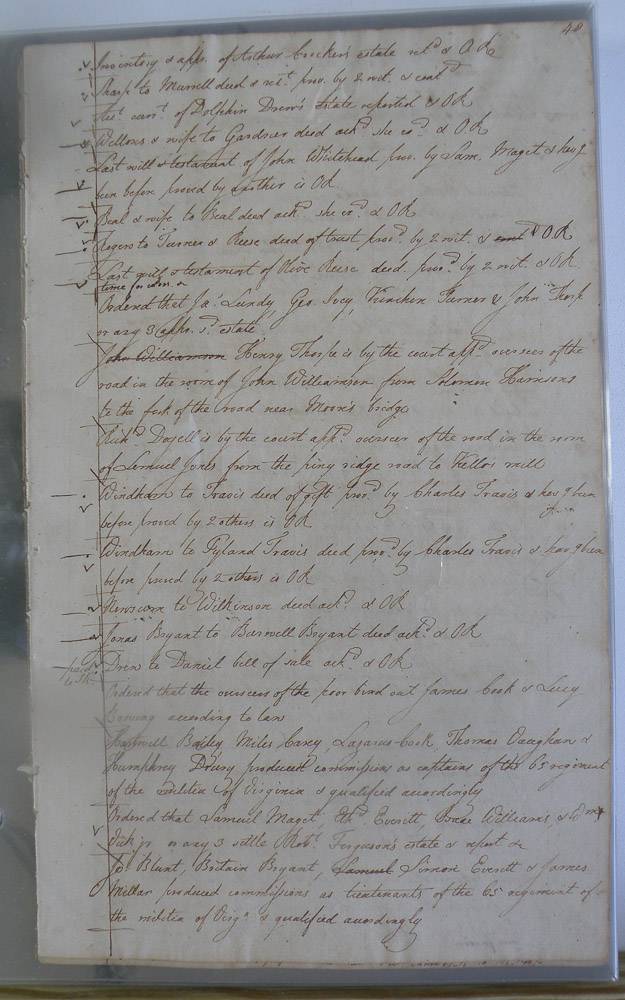 48
Inventory & appr. of Arthur Crocker's estate retd & OR
Sharp to Murrell deed & rct. prov. by 2 wit. & contd
Est. carrt. of Dolphin Drew's estate reported & OR
Wellons & wife to Gardner deed ackd she exd. & OR
Last will & testament of John Whitehead prov. by Sam. Maget & havg
been before proved by another is OR
Beal & wife to Beal deed ackd. she exd. & OR
Rogers to Turner & Reese deed of trust provd. by 2 wit. & contd & OR
Last will & testament of Olive Reese decd. provd. by 2 wit. & OR
time for
Ordered that Jas. Lundy, Geo. Ivey, Kinchen Turner & John Thorp
or any 3 appr. sd. estate
John Williamson Henry Thorpe is by the court appd. overseer of the
road in the room of John Williamson from Solomon Harrisons
to the fork of the road near Moon's bridge
Richd. Dozell is by the court appd. overseer of the road in the room
of Lemuel Jones from the piny ridge road to Kellos mill
Windham to Travis deed of gift provd. by Charles Travis & havg been
before proved by 2 others is OR
Windham to Ryland Travis deed provd. by Charles Travis & havg been
before proved by 2 others is OR
Newsom to Wilkinson deed ackd. & OR
Jonas Bryant to Barwell Bryant deed ackd. & OR
Drew to Daniel bill of sale ackd. & OR
Ordered that the overseers of the poor bind out James Cook & Lucy
according to law
Hartwell Bailey, Miles Carey, Lazarus Cook, Thomas Vaughan &
Humphrey Drury produced commissions as captains of the 65 regiment
of the militia of Virginia & qualified accordingly
Ordered that Samuel Maget, Ethd. Everitt, Isaac Williams, & Wm
Vick jr. or any 3 settle Robt. Ferguson's estate & report &
Jos Blunt, Britain Bryant, Samuel Simon Everitt & James
Millar produced commissions as lieutenants of the 65 regiment of
the militia of Virga. & qualified accordingly